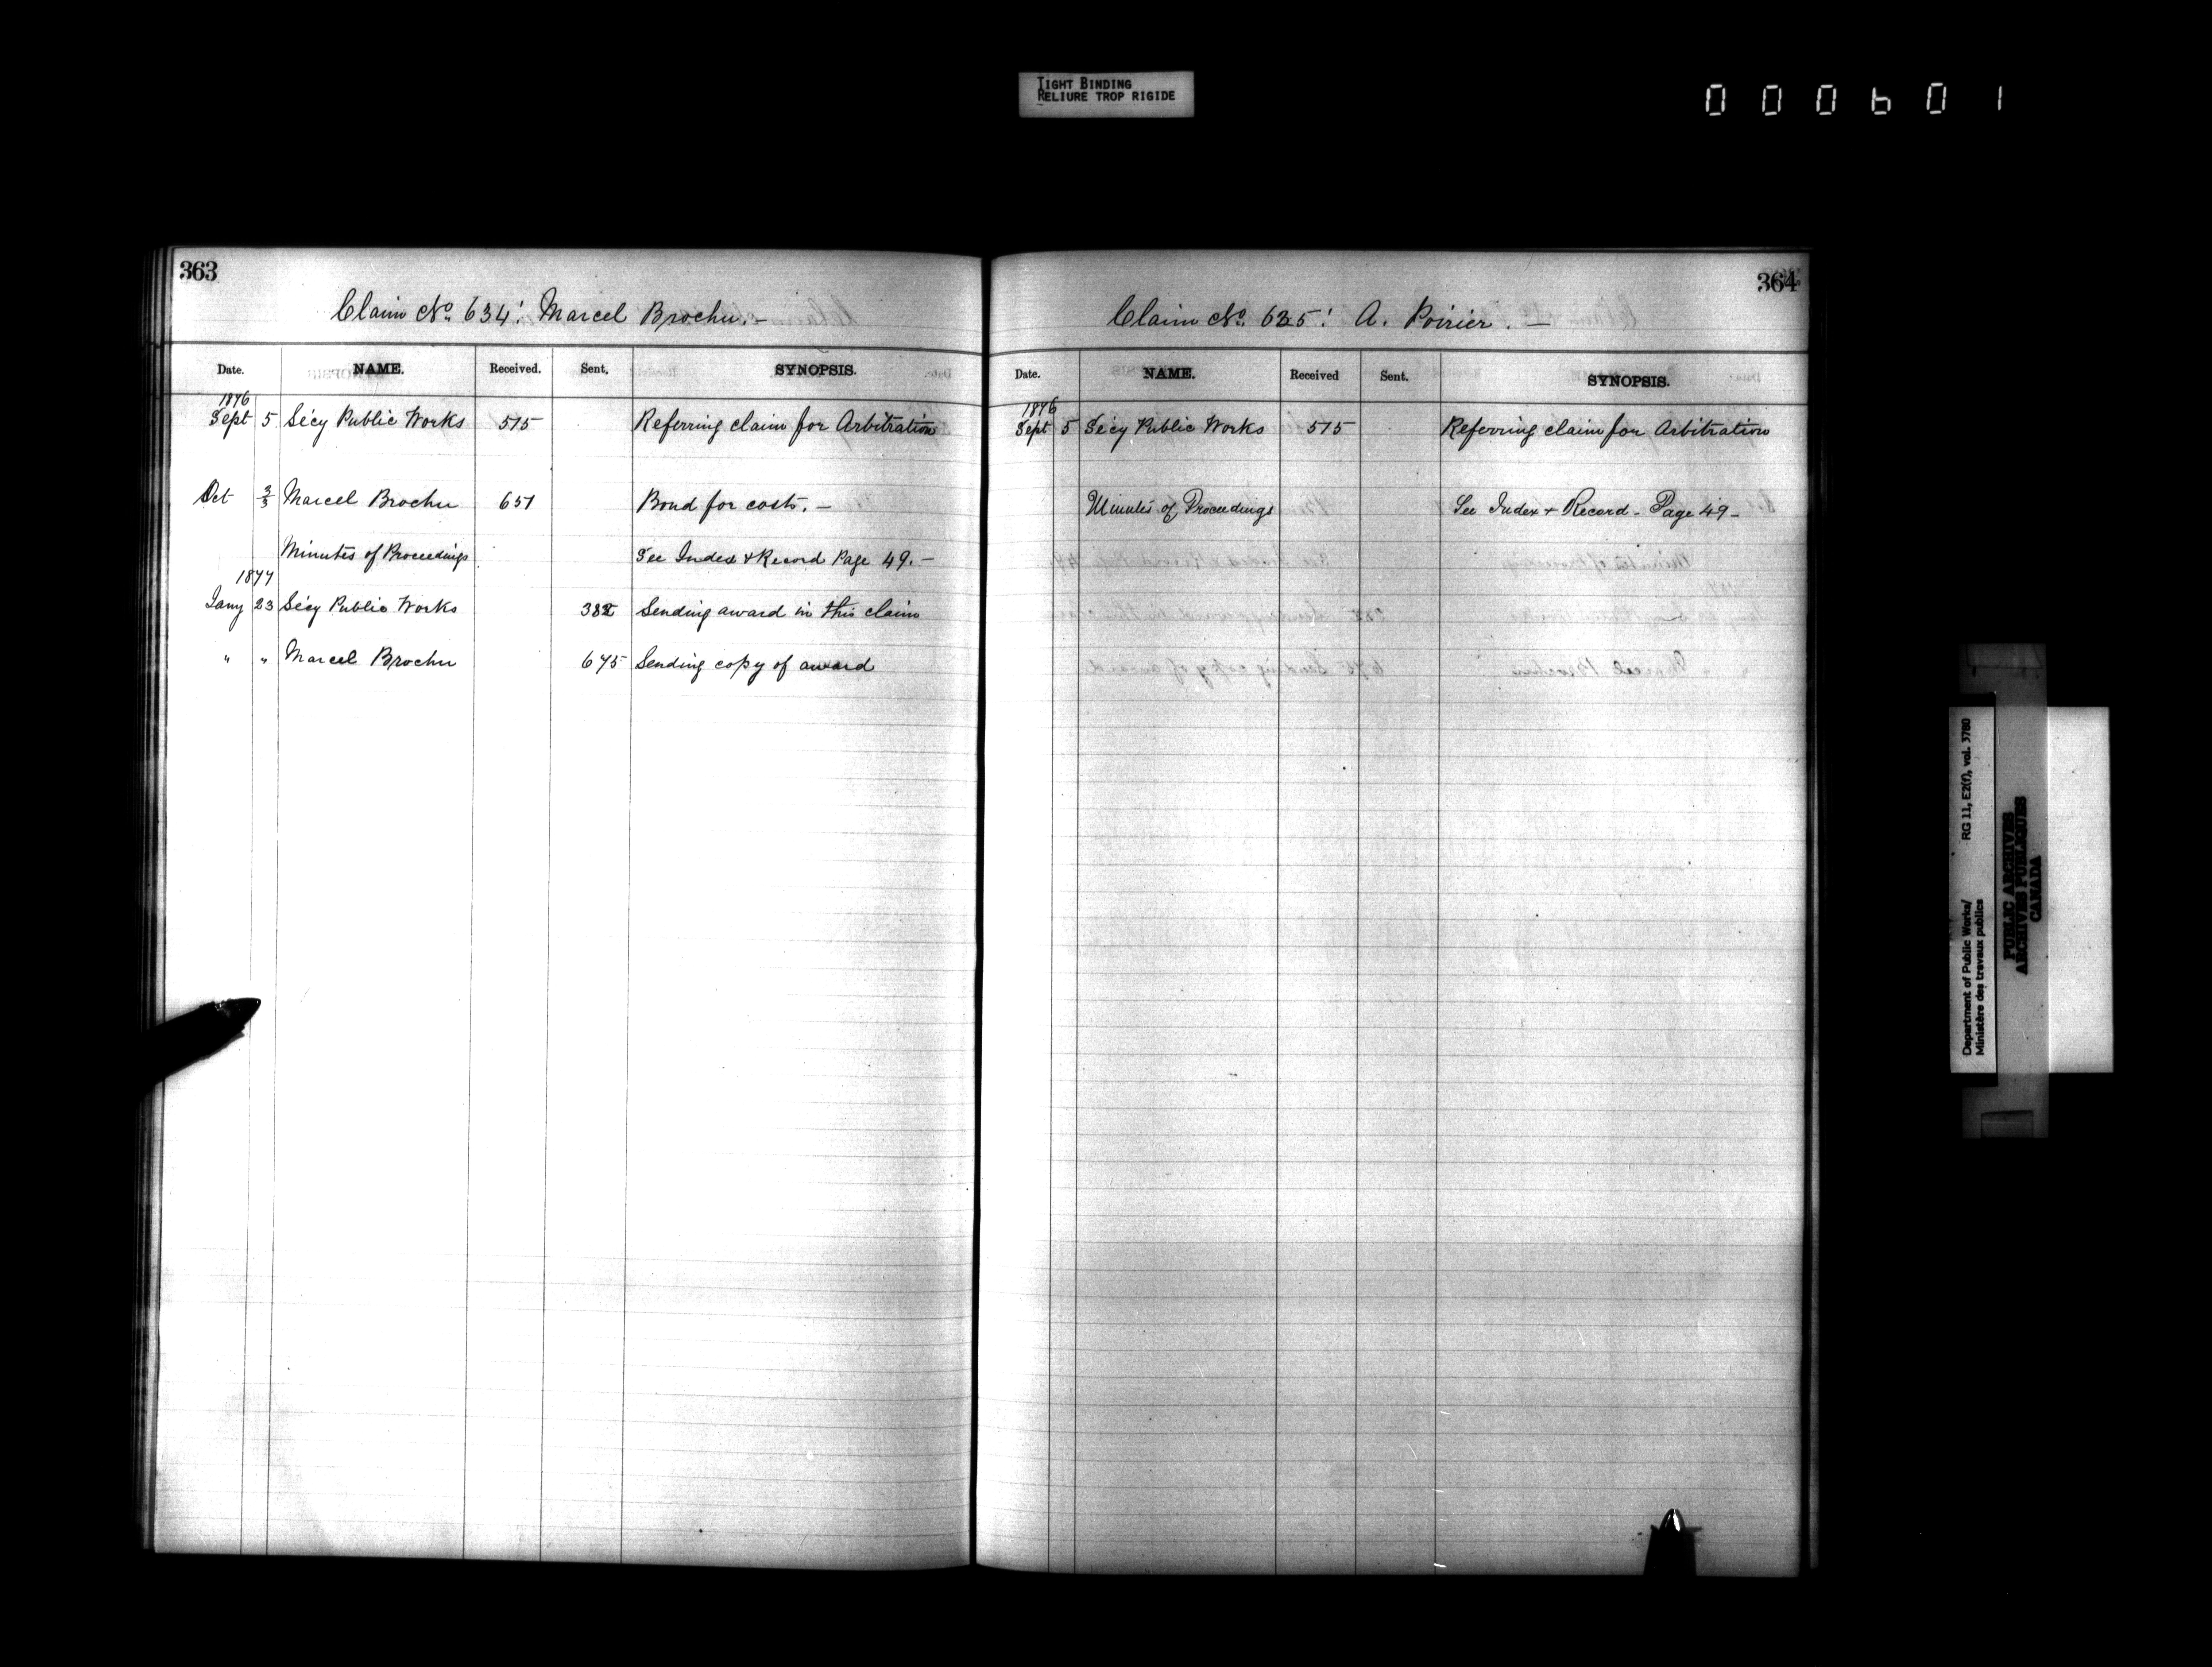 TIGHT BINDING
RELIURE TROP RIGIDE
000601
363
Claim No. 634: Marcel Brochu. –
Date. NAME. Received. Sent. SYNOPSIS.
1876
Sept 5 Sécy Public Works 515 Referring claim for Arbitration
Oct 2/3 Marcel Brochu 651 Bond for costs. –
Minutes of Proceedings See Index & Record Page 49. –
1877
Jany 23 Sécy Public Works 382 Sending award in this claim
" " Marcel Brochu 675 Sending copy of award
364
Claim No. 635: A. Poirier. –
Date. NAME. Received Sent. SYNOPSIS.
1876
Sept 5 Sécy Public Works 515 Referring claim for Arbitration
Minutes of Proceedings See Index & Record – Page 49 –
Department of Public Works/ RG 11, E2(f), vol. 3780
Ministère des travaux publics
PUBLIC ARCHIVES
ARCHIVES PUBLIQUES
CANADA